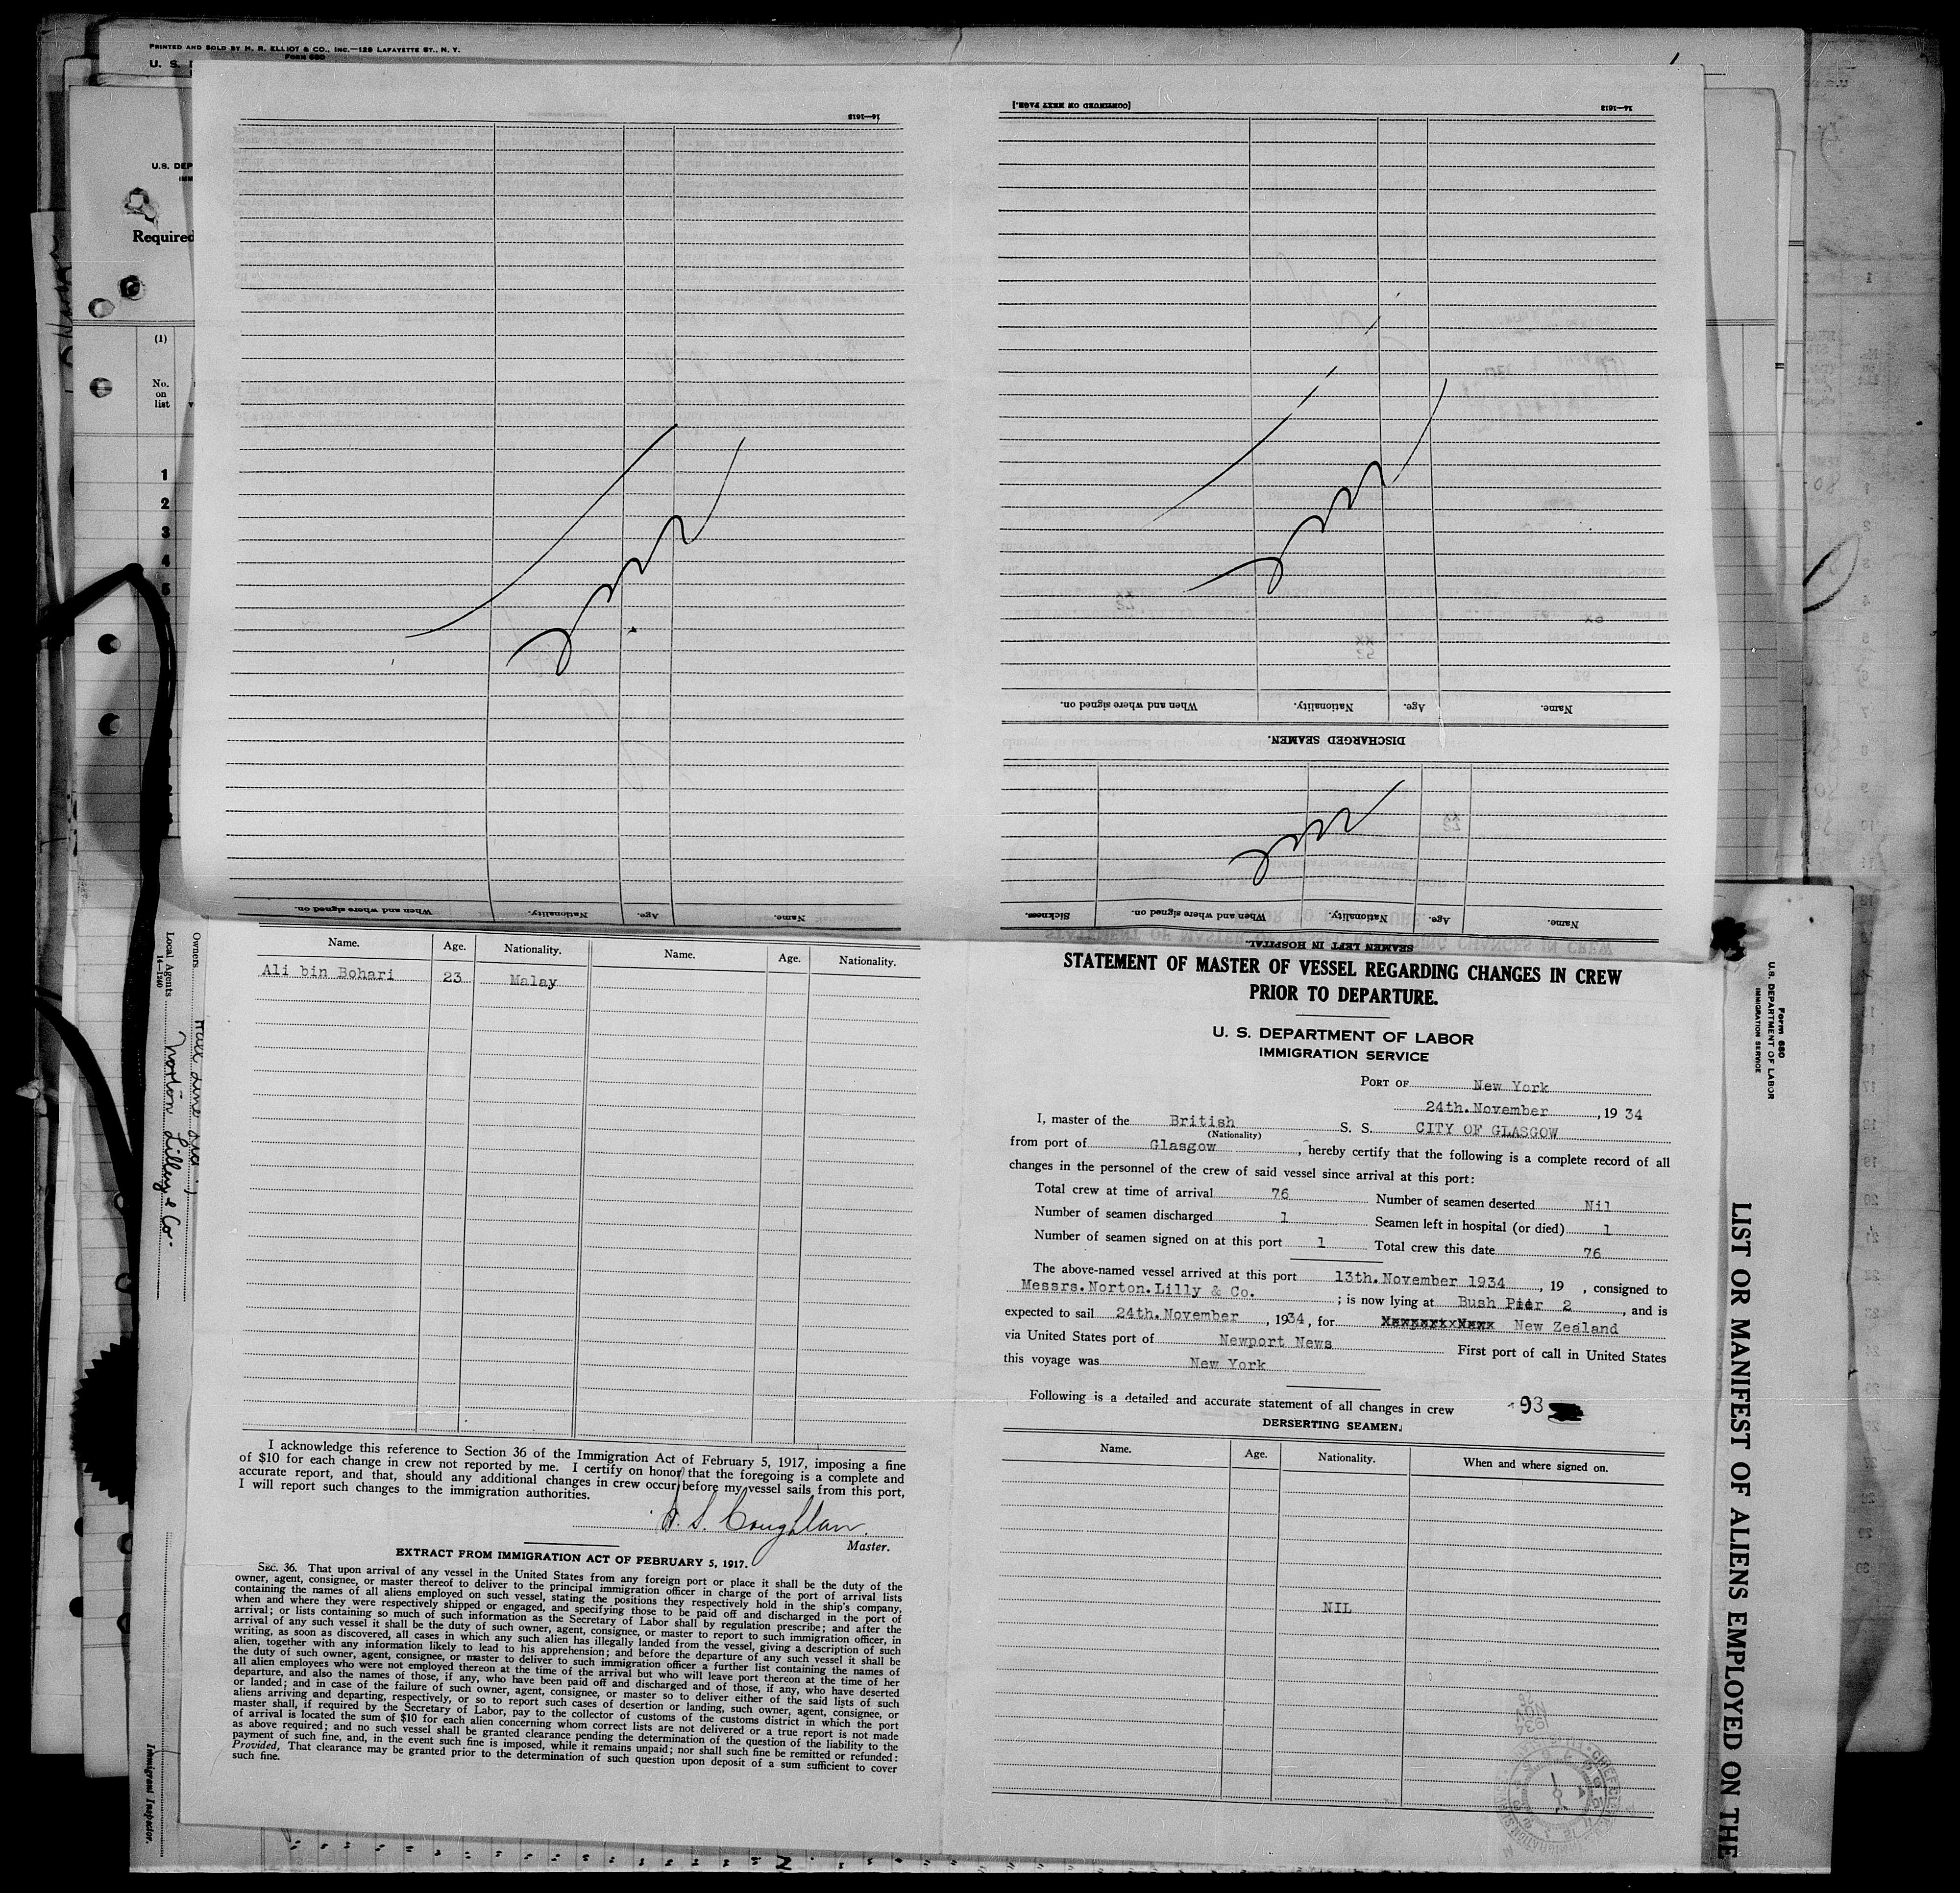 PRINTED AND SOLD BY H. R. ELLIOT & CO., INC.—129 LAFAYETTE ST., N. Y.
FORM 680
U. S.
U.S. DEP
IMM
Required
(1)
No.
on
list
1
2
3
4
5
16—1613
When and where signed on.
Nationality.
Age.
Name.
[CONTINUED ON NEXT PAGE.]
16—1613
When and where signed on.
Nationality.
Age.
Name.
DISCHARGED SEAMEN.
Sickness.
When and where signed on.
Nationality.
Age.
Name.
SEAMEN LEFT IN HOSPITAL.
Name. Age. Nationality. Name. Age. Nationality.
Ali bin Bohari 23 Malay
I acknowledge this reference to Section 36 of the Immigration Act of February 5, 1917, imposing a fine
of $10 for each change in crew not reported by me. I certify on honor that the foregoing is a complete and
accurate report, and that, should any additional changes in crew occur before my vessel sails from this port,
I will report such changes to the immigration authorities.
S. Coughlan.
Master.
EXTRACT FROM IMMIGRATION ACT OF FEBRUARY 5, 1917.
SEC. 36. That upon arrival of any vessel in the United States from any foreign port or place it shall be the duty of the
owner, agent, consignee, or master thereof to deliver to the principal immigration officer in charge of the port of arrival lists
containing the names of all aliens employed on such vessel, stating the positions they respectively hold in the ship's company,
when and where they were respectively shipped or engaged, and specifying those to be paid off and discharged in the port of
arrival; or lists containing so much of such information as the Secretary of Labor shall by regulation prescribe; and after the
arrival of any such vessel it shall be the duty of such owner, agent, consignee, or master to report to such immigration officer, in
writing, as soon as discovered, all cases in which any such alien has illegally landed from the vessel, giving a description of such
alien, together with any information likely to lead to his apprehension; and before the departure of any such vessel it shall be
the duty of such owner, agent, consignee, or master to deliver to such immigration officer a further list containing the names of
all alien employees who were not employed thereon at the time of the arrival but who will leave port thereon at the time of her
departure, and also the names of those, if any, who have been paid off and discharged and of those, if any, who have deserted
or landed; and in case of the failure of such owner, agent, consignee, or master so to deliver either of the said lists of such
aliens arriving and departing, respectively, or so to report such cases of desertion or landing, such owner, agent, consignee, or
master shall, if required by the Secretary of Labor, pay to the collector of customs of the customs district in which the port
of arrival is located the sum of $10 for each alien concerning whom correct lists are not delivered or a true report is not made
as above required; and no such vessel shall be granted clearance pending the determination of the question of the liability to the
payment of such fine, and, in the event such fine is imposed, while it remains unpaid; nor shall such fine be remitted or refunded:
Provided, That clearance may be granted prior to the determination of such question upon deposit of a sum sufficient to cover
such fine.
STATEMENT OF MASTER OF VESSEL REGARDING CHANGES IN CREW
PRIOR TO DEPARTURE.
U. S. DEPARTMENT OF LABOR
IMMIGRATION SERVICE
PORT OF New York
24th. November, 1934
I, master of the British S. S. CITY OF GLASGOW
(Nationality)
from port of Glasgow, hereby certify that the following is a complete record of all
changes in the personnel of the crew of said vessel since arrival at this port:
Total crew at time of arrival 76 Number of seamen deserted Nil
Number of seamen discharged 1 Seamen left in hospital (or died) 1
Number of seamen signed on at this port 1 Total crew this date 76
The above-named vessel arrived at this port 13th. November 1934, 19 , consigned to
Messrs. Norton. Lilly & Co. ; is now lying at Bush Pier 2, and is
expected to sail 24th. November, 1934, for New Zealand
via United States port of Newport News First port of call in United States
this voyage was New York
Following is a detailed and accurate statement of all changes in crew 193
DERSERTING SEAMEN.
Name. Age. Nationality. When and where signed on.
NIL
Owners
Local Agents Norton Lilly & Co.
14—1240
Immigrant Inspector.
Form 680
U.S. DEPARTMENT OF LABOR
IMMIGRATION SERVICE
LIST OR MANIFEST OF ALIENS EMPLOYED ON THE